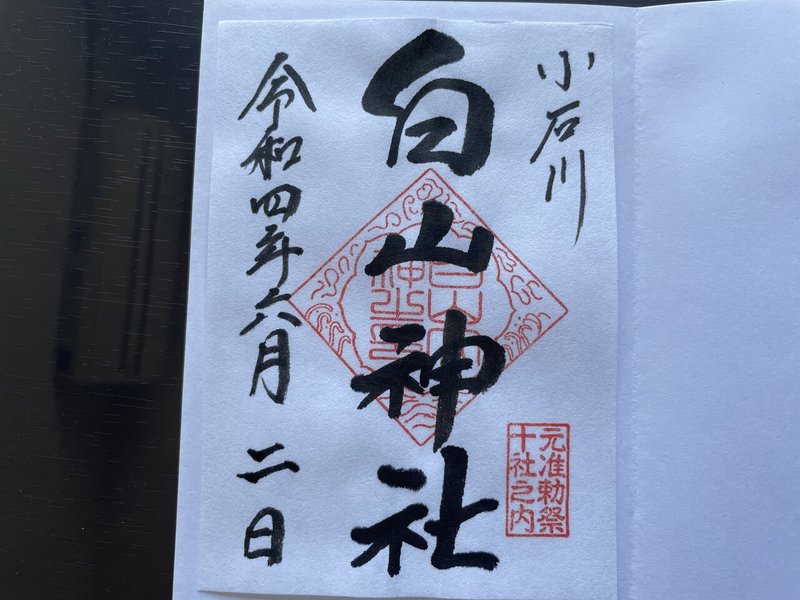 小石川
元准勅祭
十社之内
白山神社
令和四年六月二日